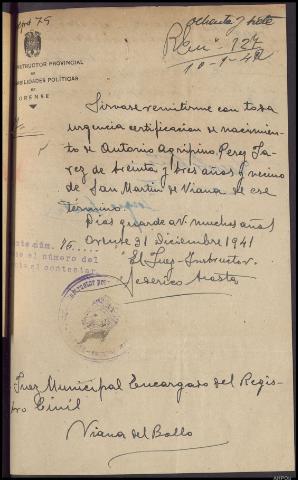 ochenta y siete
75
R. Eª nº 127
10-1-42
NSTRUCTOR PROVINCIAL
DE
ABILIDADES POLÍTICAS
DE
ORENSE
Sírvase remitirme con toda
urgencia certificación de nacimien
to de Antonio Agripino Perez
vez de treinta y tres años y vecino
de San Martin de Viana de ese
término.
Dios guarde a V. muchos años
Orense 31 Diciembre 1941
El Juez Instructor.
Federico Acosta
núm. 75
el número del
al contestar.
Juez Municipal Encargado del Regis
tro Civil
Viana del Bollo
AHPOU